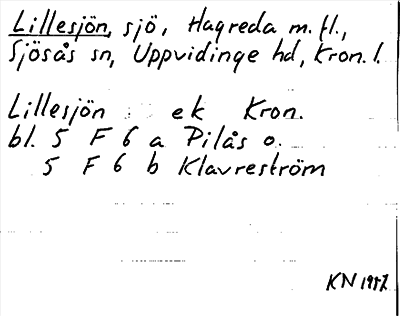 Lillesjön, sjö, Hagreda m. fl.,
Sjösås sn, Uppvidinge hd, Kron. l.
Lillesjön ek Kron.
bl. 5 F 6 a Pilås o.
5 F 6 b Klavreström